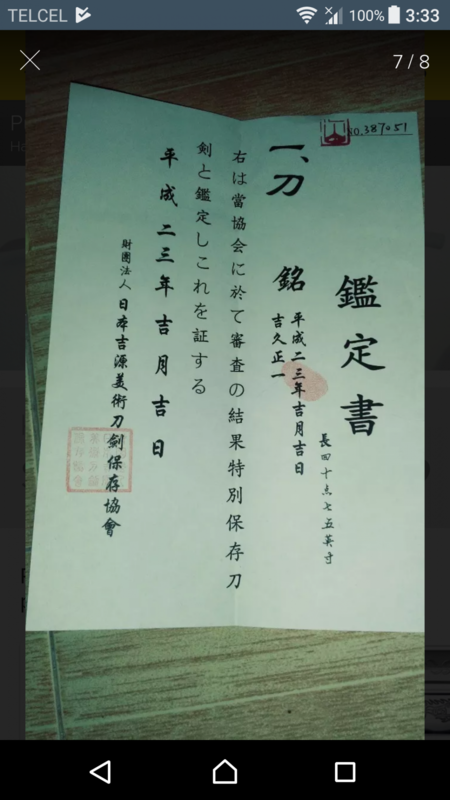 TELCEL 100% 3:33
7 / 8
NO.387051
鑑定書
長四十点七五英寸
一、刀
銘 平成二三年吉月吉日
吉久正一
右は當協会に於て審査の結果特別保存刀
剣と鑑定しこれを証する
平成二三年吉月吉日
財團法人 日本吉源美術刀劍保存協會